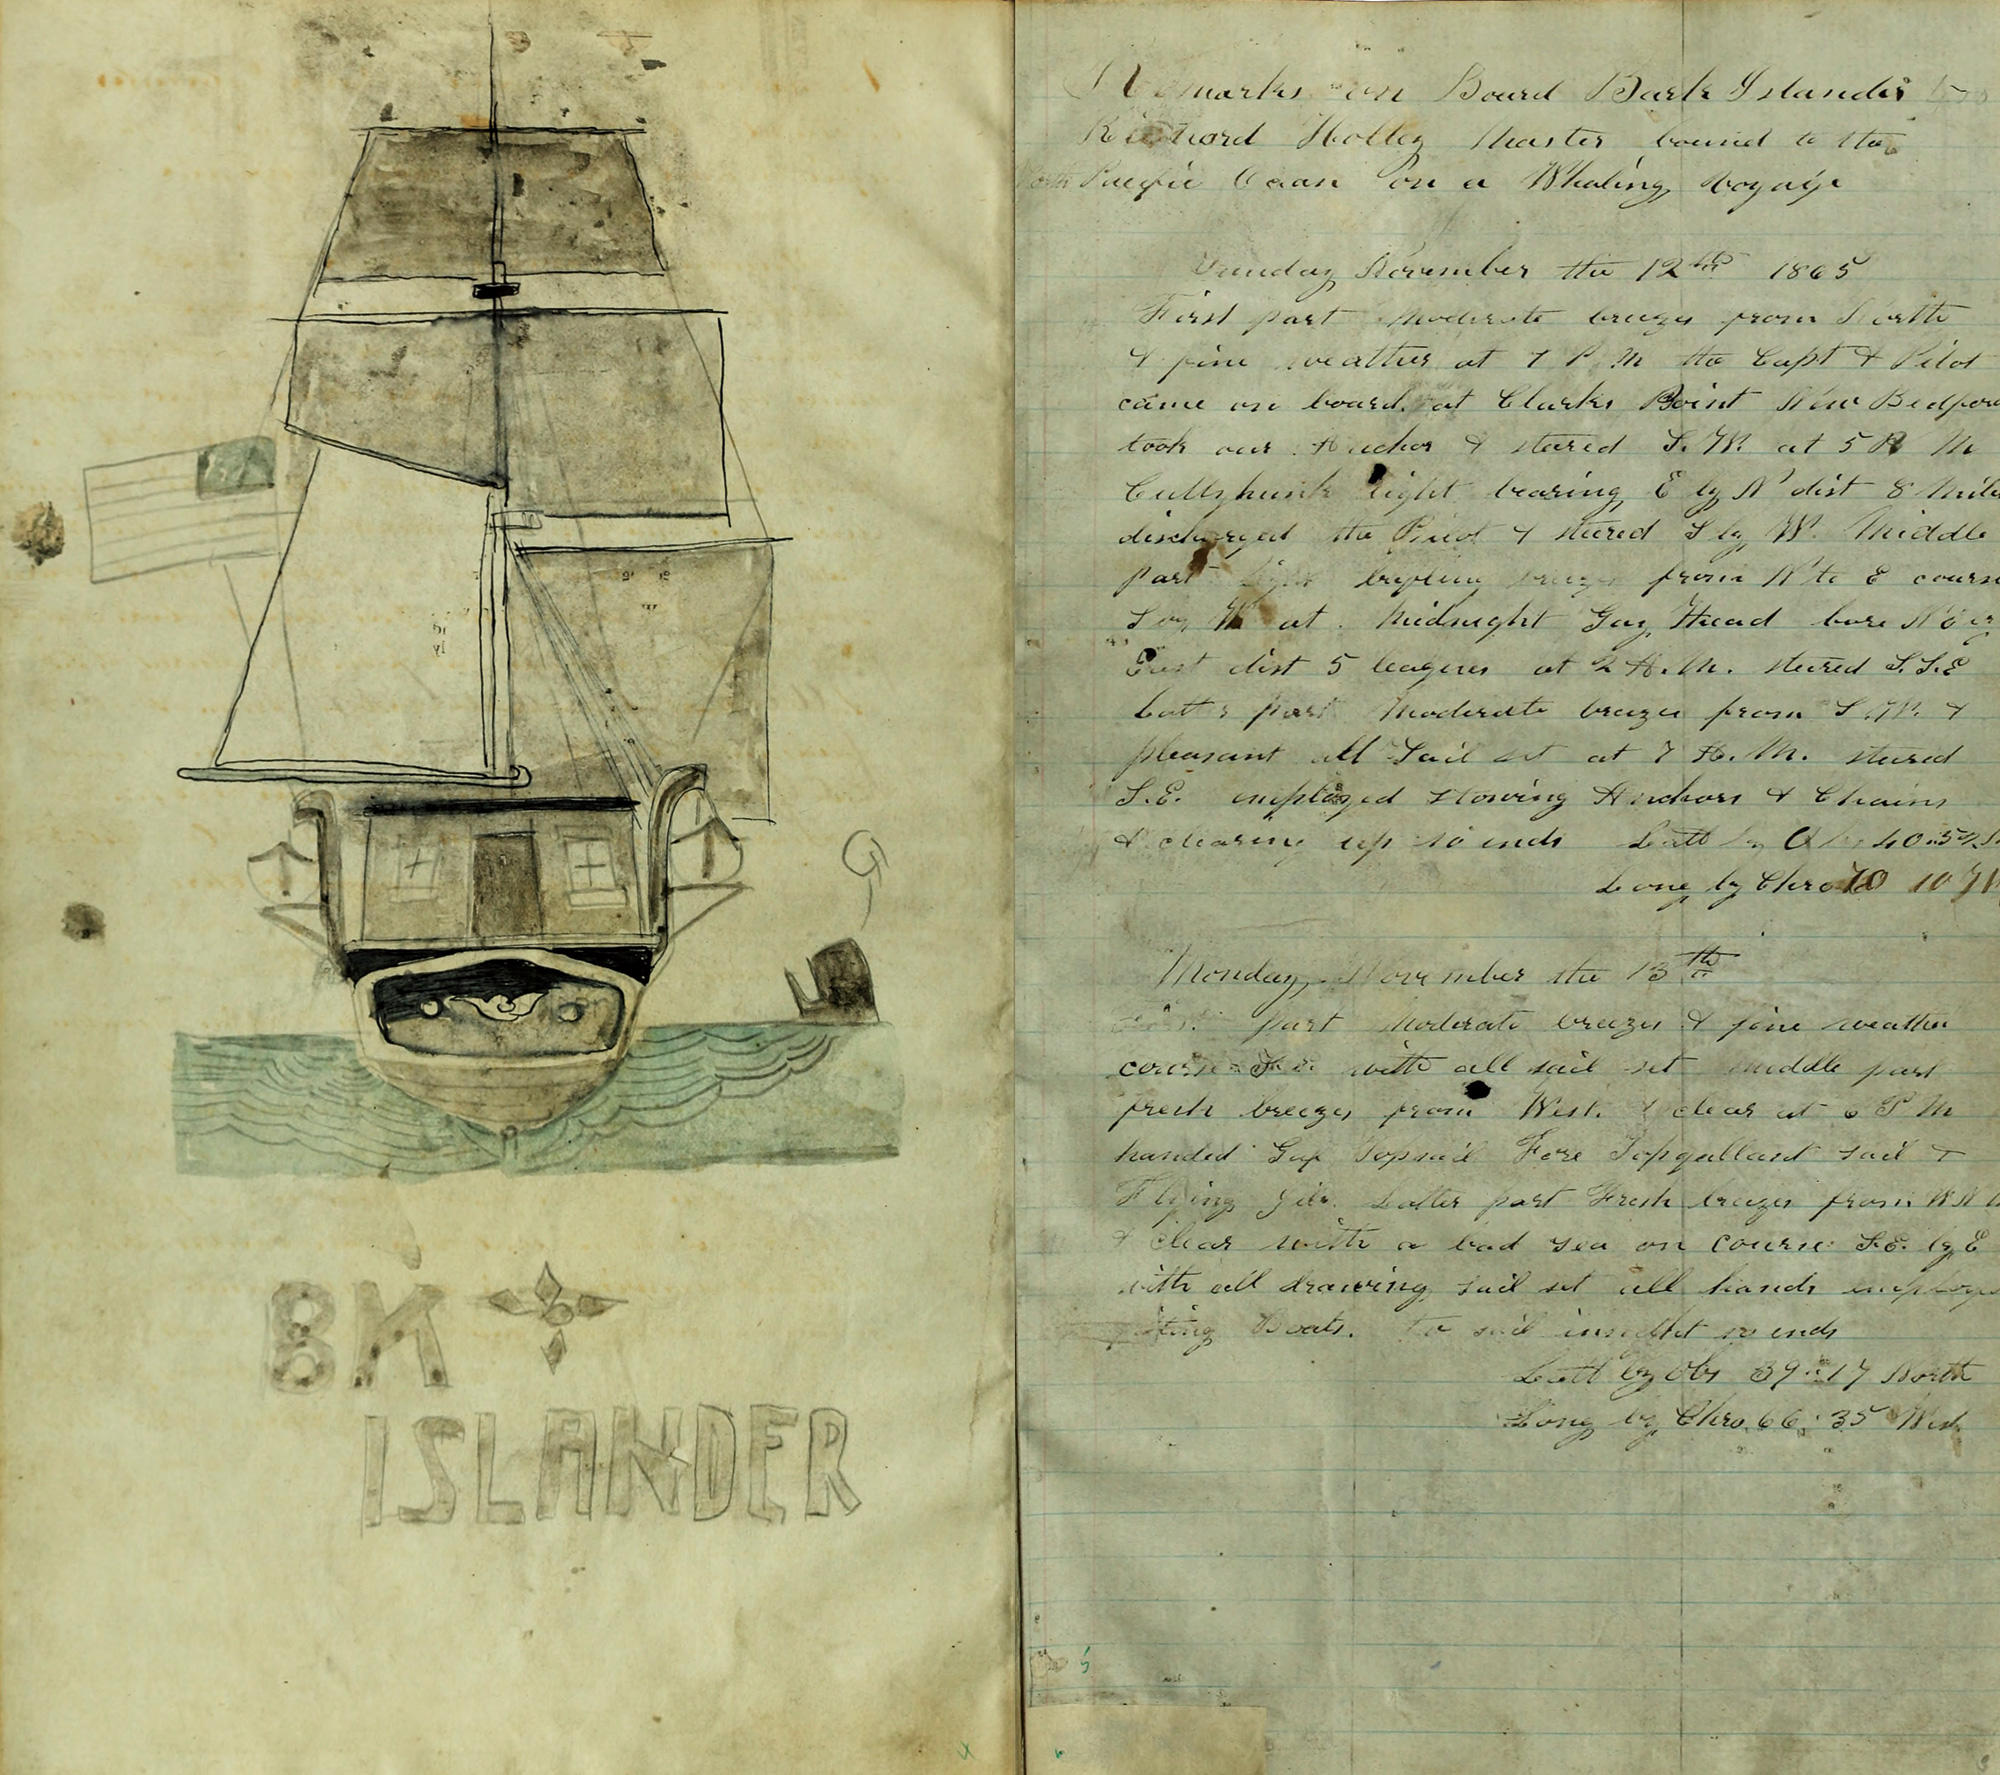 BK
ISLANDER
Remarks on Board Bark Islander
Richard Holley Master bound to the
North Pacific Ocean on a Whaling voyage
Sunday November the 12th 1865
First part Moderate breezes from North
& fine weather at 7 P M the Capt & Pilot
came on board at Clarks Point New Bedford
took our Anchor & steered S. W. at 5 P M
Cuttyhunk light bearing E by N dist 8 Miles
discharged the Pilot & steered S by W. Middle
part light from N to E course
S by W at Midnight Gay Head bore
East dist 5 leagues at 2 A. M. steered S. S. E
Latter part Moderate breezes from S. W. &
pleasant all Sail set at 7 A. M. steered
S. E. employed stowing Anchors & Chains
& clearing up so ends Latt by Ob 40..52
Long by Chro 70 10 W
Monday November the 13th
First part Moderate breezes & fine weather
course S. E. with all sail set middle part
fresh breezes from West. & clear at 6 P M
handed Gaf Topsail Fore Topgallant sail &
Flying Jib. Latter part Fresh breezes from W N W
& clear with a bad sea on course S. E. by E
with all drawing sail set all hands employed
Boats. no sail insight so ends
Latt by Obs 39..17 North
Long by Chro. 66: 35 West
5